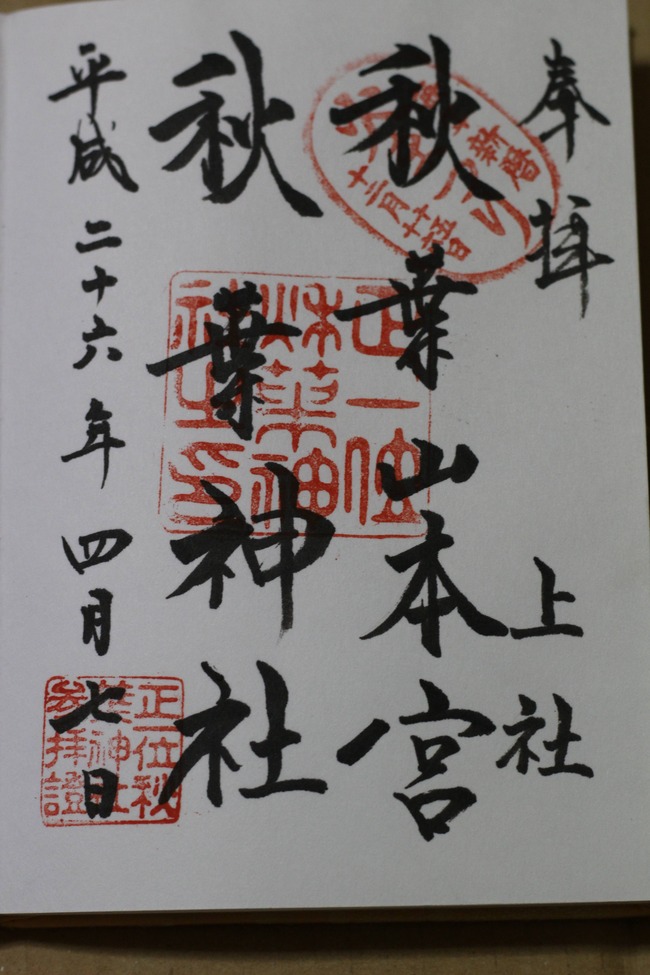 奉拝 上社
秋葉山本宮
秋葉神社
平成二十六年四月七日
新暦
正一位
秋葉神
社之印
正一位秋
葉神社
参拝證